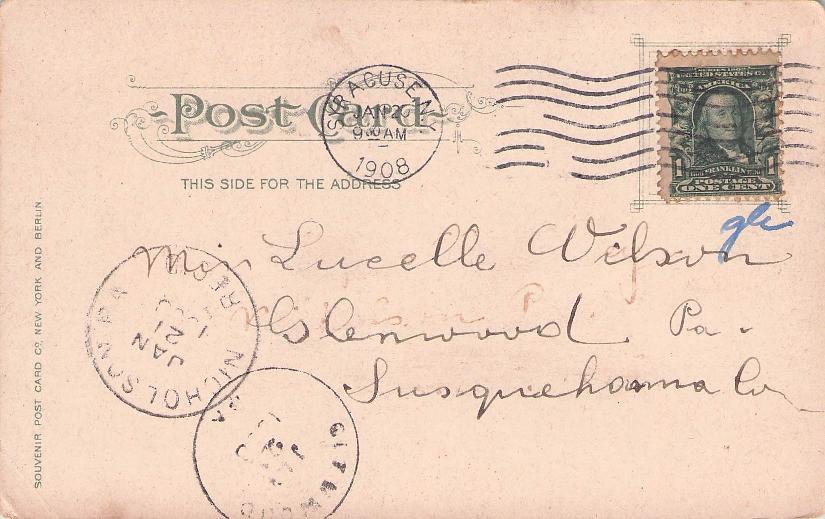 Post Card
THIS SIDE FOR THE ADDRESS
SYRACUSE N.Y.
JAN 20
9 30 AM
1908
SERIES 1902
UNITED STATES OF
AMERICA
FRANKLIN
1 1
POSTAGE
ONE CENT
Miss Lucelle Wilson
Glenwood Pa.
Susquehanna Co
NICHOLSON PA
JAN
21
SOUVENIR POST CARD CO. NEW YORK AND BERLIN